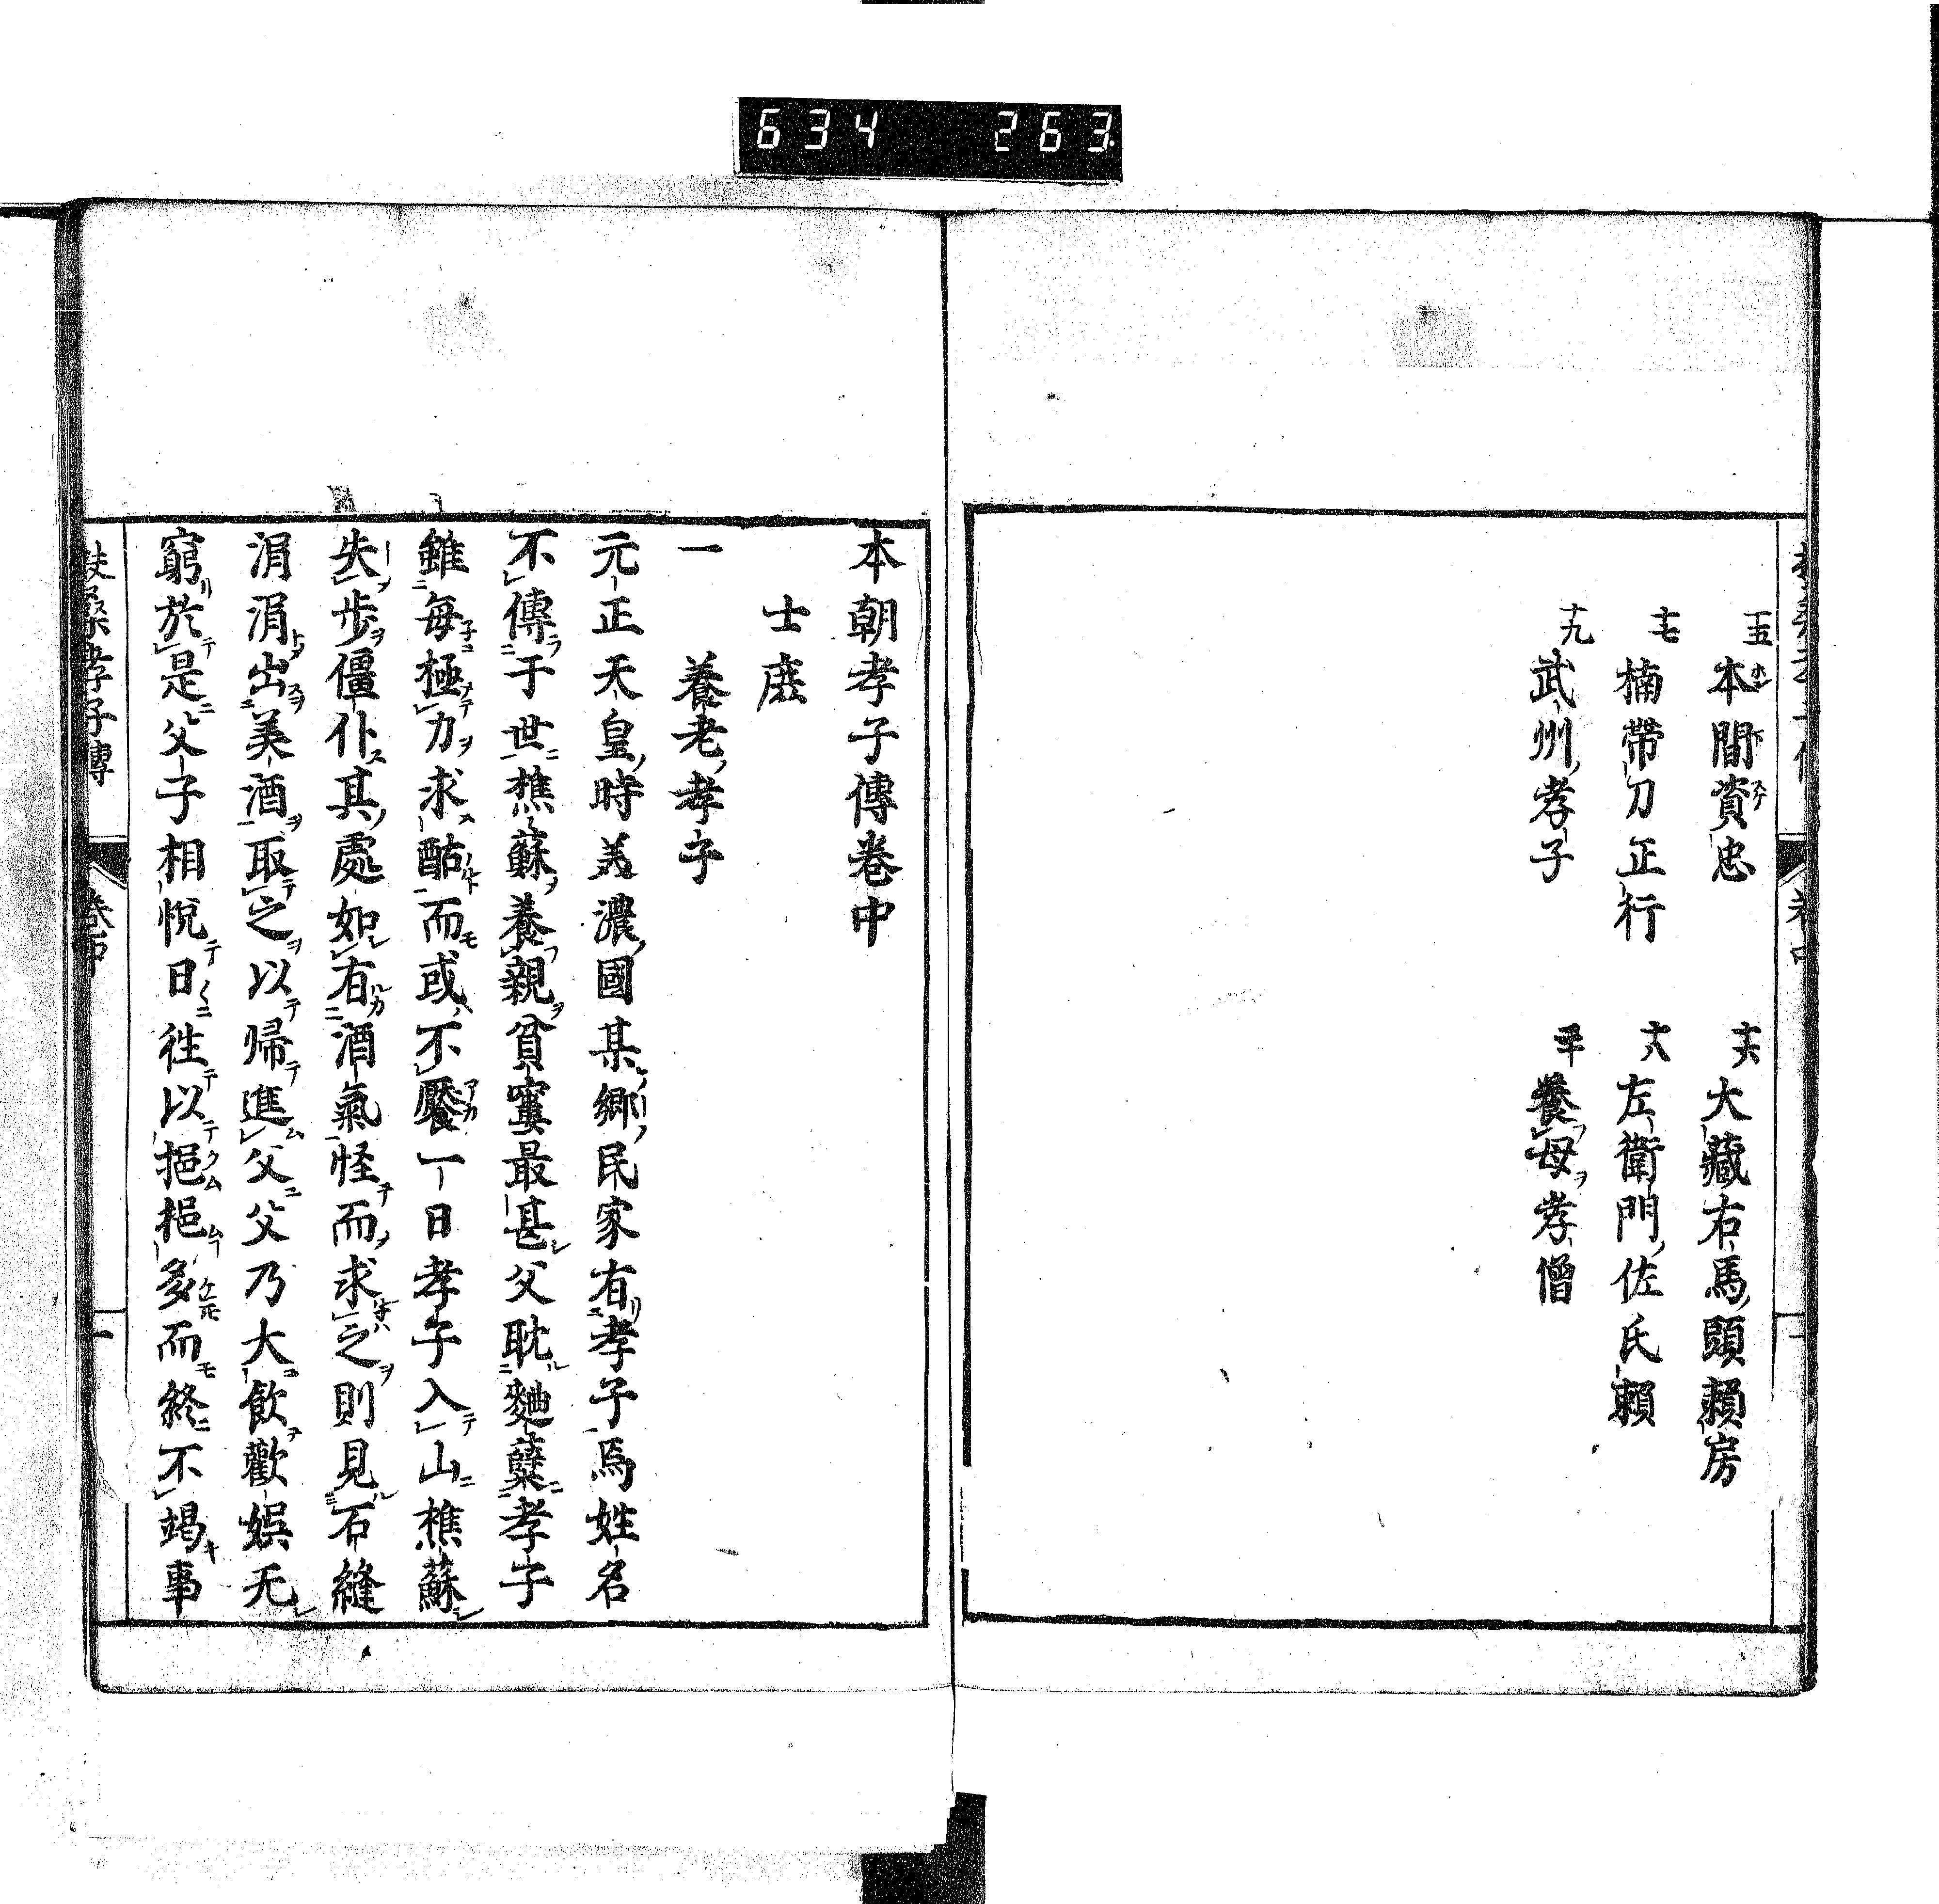 634 263
十五 本間資忠
十六 大藏右馬頭頼房
十七 楠帶刀正行
十八 左衛門佐氏頼
十九 武州孝子
二十 養母孝僧
本朝孝子傳卷中
士庶
一 養老孝子
元正天皇時美濃國某郷民家有孝子焉姓名
不傳于世樵蘇養親貧窶最甚父耽麹蘖孝子
雖毎極力求酤而或不饜一日孝子入山樵蘇
失歩僵仆其處如有酒氣怪而求之則見石縫
涓涓出美酒取之以帰進父父乃大飲歡娯无
窮於是父子相悦日往以挹挹多而終不竭事
扶桑孝子傳 卷中 一